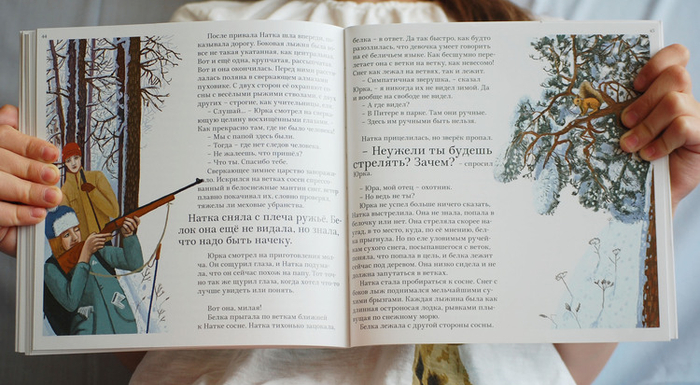 44
После привала Натка шла впереди,
казывала дорогу. Боковая лыжня была
все не такая укатанная, как центральная.
Вот и ещё одна, крупчатая, рассыпчатая.
Вот и она окончилась. Перед ними
лась поляна в сверкающем алмазами
пуховике. С двух сторон её окружали
сны с весёлыми рыжими стволами, с двух
других – строгие, как учительницы,
– Слушай... – Юрка смотрел на сверкающую
ющую целину восхищёнными глазами. –
Как прекрасно там, где не было человека!
– Мы с папой здесь были.
– Тогда – где нет следов человека.
– Не жалеешь, что пришёл?
– Что ты. Спасибо тебе.
Сверкающее зимнее царство
ло. Искрился на ветках сосен
ванный в белоснежные мантии снег,
плавно покачивал их, словно
тяжелы ли меховые убранства.
Натка сняла с плеча ружьё. Бе-
лок она ещё не видала, но знала,
что надо быть начеку.
Юрка смотрел на приготовления
ча. Он сощурил глаза, и Натка
ла, что он сейчас похож на папу. Тот
но так же щурил глаза, когда хотел что-то
лучше увидеть или понять.
Вот она, милая!
Белка прыгала по веткам ближней
к Натке сосне. Натка тихонько зацокала,
45
белка – в ответ. Да так быстро, как будто
разозлилась, что девочка умеет говорить
на её беличьем языке. Как бесшумно пере-
летает она с ветки на ветку, как невесомо!
Снег как лежал на ветвях, так и лежит.
– Симпатичная зверушка, – сказал
Юрка, – я никогда их не видел зимой. Да
и вообще на свободе не видел.
– А где видел?
– В Питере в парке. Там они ручные.
– Здесь им ручными быть нельзя.
Натка прицелилась, но зверёк пропал.
– Неужели ты будешь
стрелять? Зачем? – спросил
Юрка.
– Юра, мой отец – охотник.
– Но ведь не ты?
Юрка не успел больше ничего сказать,
Натка выстрелила. Она не знала, попала в
белочку или нет. Она стреляла скорее на-
угад, в то место, куда, по её мнению, бел-
ка прыгнула. Но по еле уловимым ручей-
кам сухого снега, посыпавшегося с веток,
поняла, что попала в цель, и белка лежит
сейчас под деревом. Она низко сидела и не
должна запутаться в ветках.
Натка стала пробираться к сосне. Снег с
боков лыж поднимался мельчайшими су-
хими брызгами. Каждая лыжина была как
длинная остроносая лодка, рывками плы-
вущая по снежному морю.
Белка лежала с другой стороны сосны.